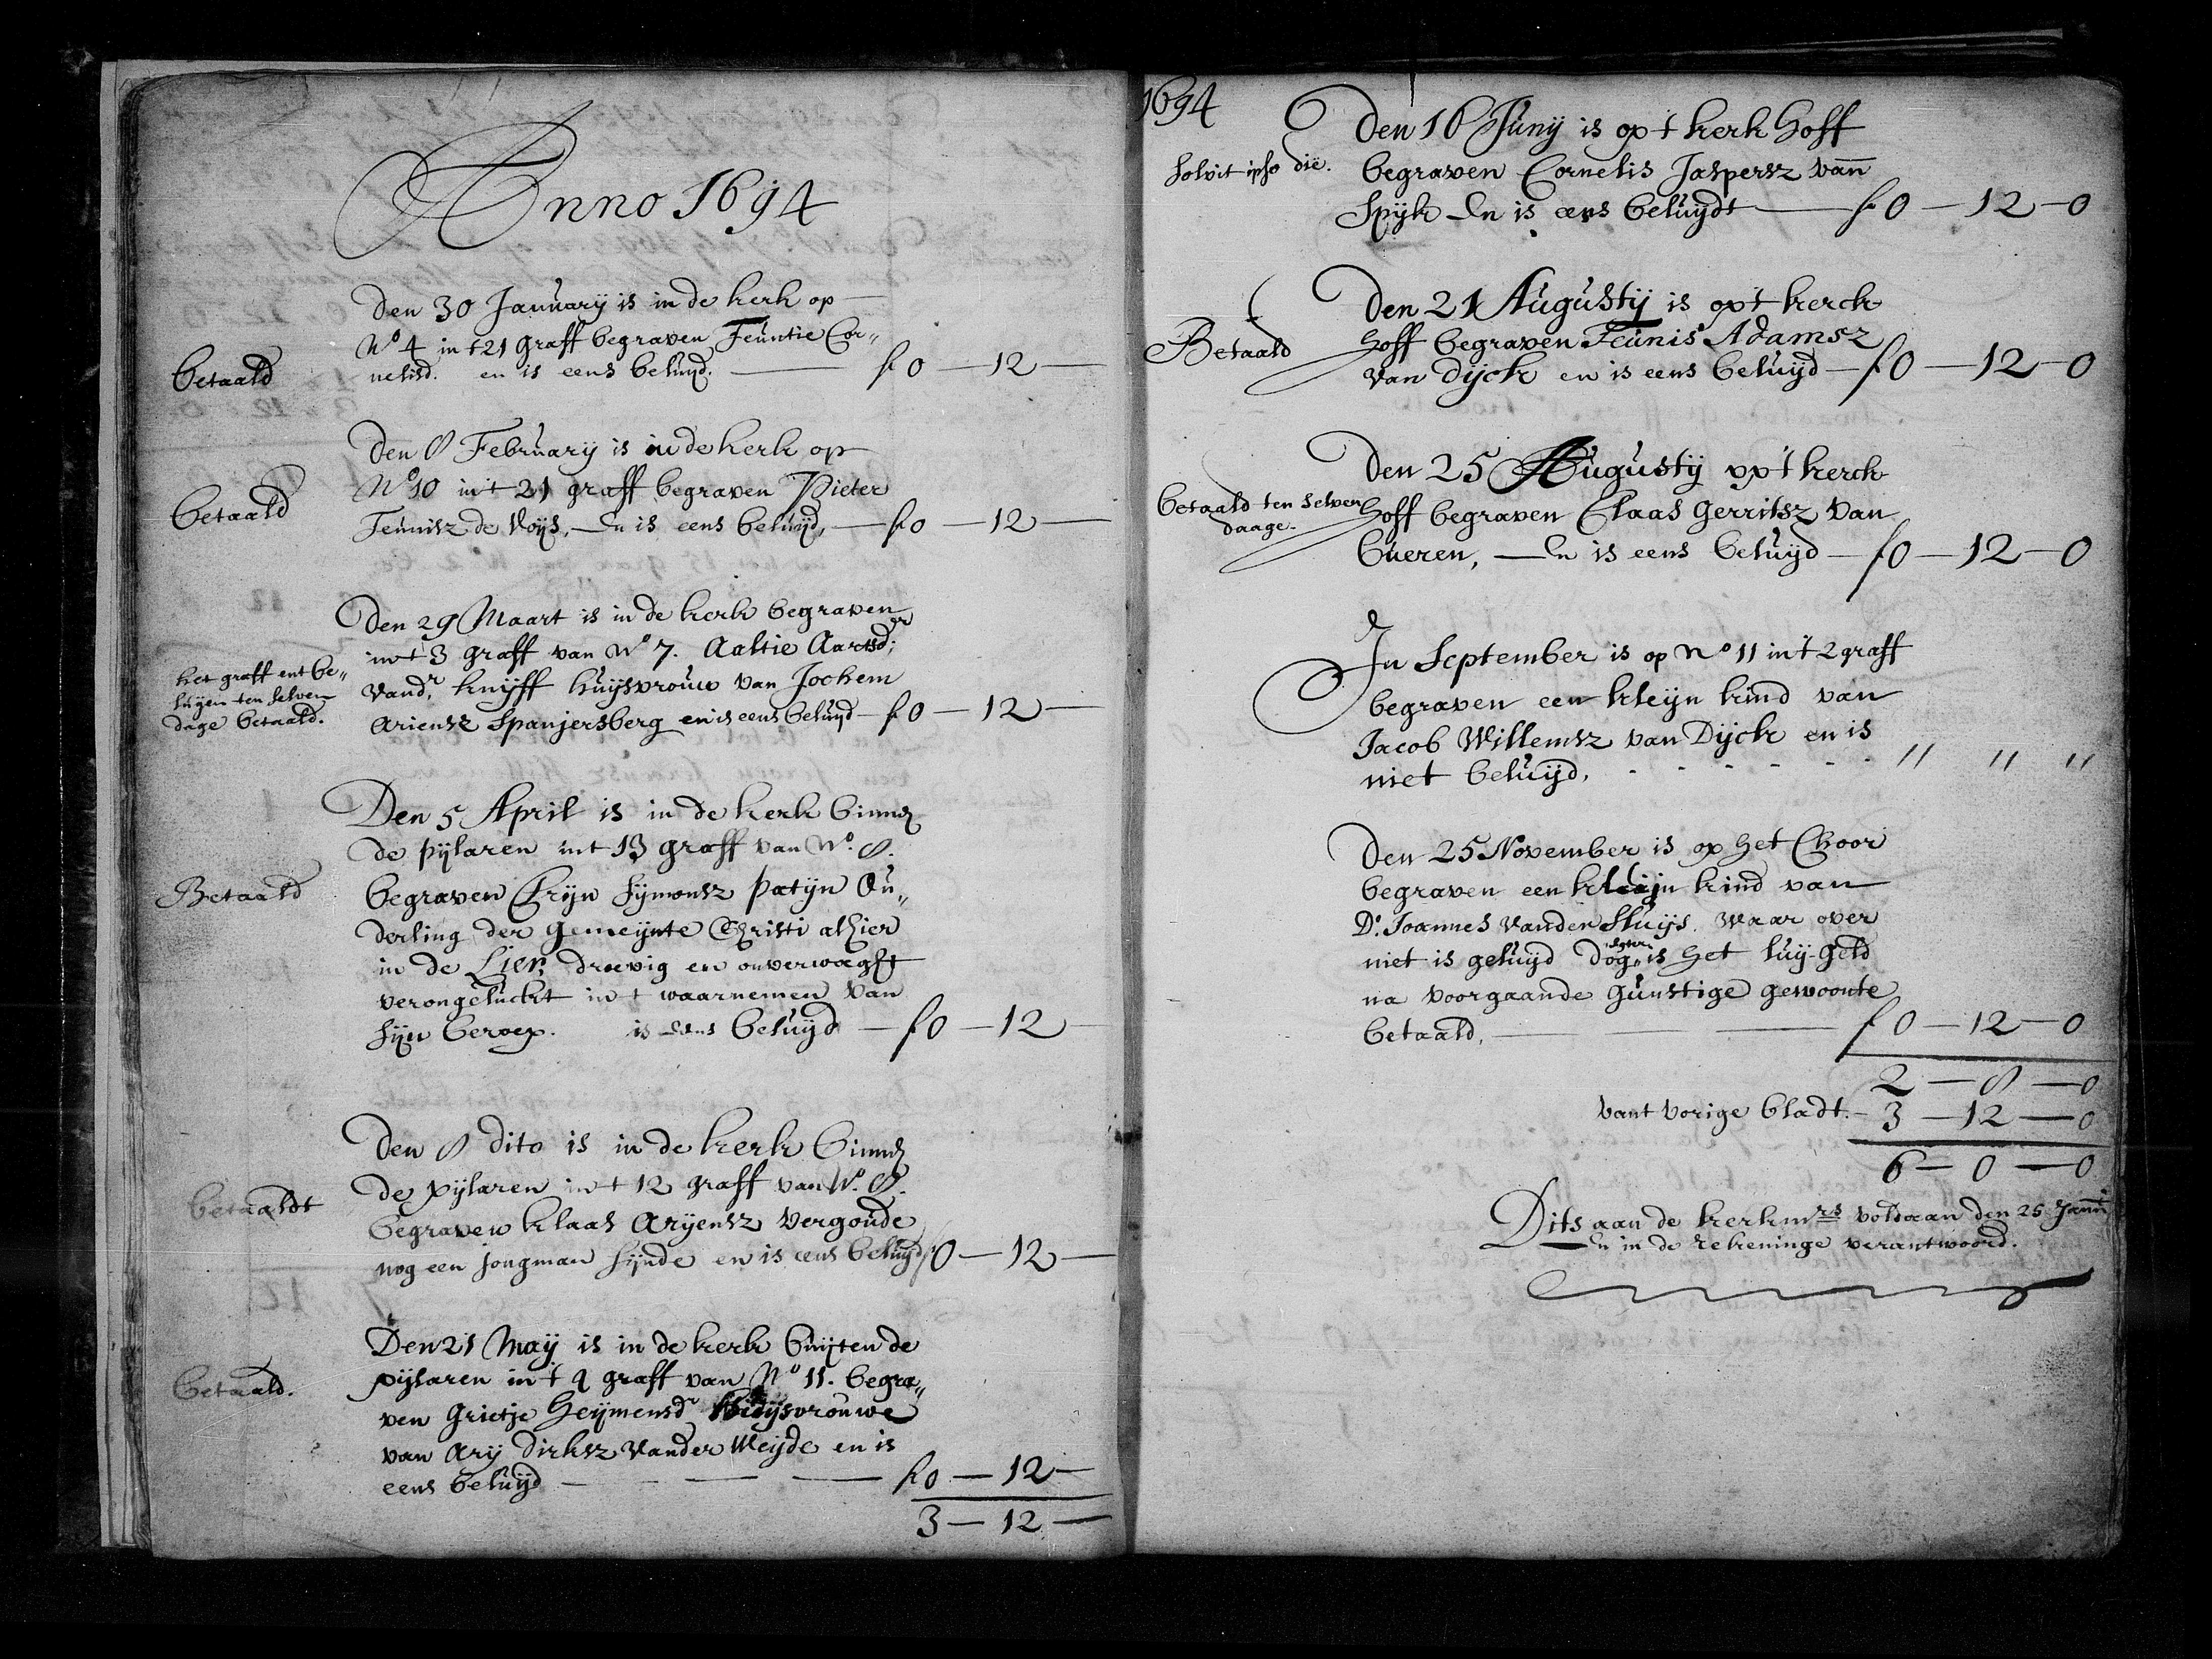 Anno 1694
Den 30 January is in de kerk op
No 4 in t 21 graff begraven Teuntie Cor„
betaald nelisd. en is eens beluyd. f 0 — 12 —
Den 8 February is in de kerk op
No 10 int 21 graff begraven Pieter
betaald Teunisz de Voijs, En is eens beluijd, f 0 — 12 —
Den 29 Maart is in de kerk begraven
in t 3 graff van No 7. Aaltie Aartsdr
het graff ent be„
luijen ten selven
dage betaald.
vandr knijff huijsvrouw van Jochem
Ariensz Spanjersberg en is eens beluijd f 0 — 12 —
Den 5 April is in de kerk binnen
de pylaren int 13 graff van No. 8.
Betaald begraven Crijn Sijmonsz patijn Ou„
derling der gemeijnte Christi alhier
in de Lier, droevig en onverwaght
verongeluckt in t waarnemen van
sijn beroep. is eens beluijd — f 0 — 12
Den 8 dito is in de kerk binnen
de pylaren in t 12 graff van No. 8.
betaaldt begraven klaas Arijensz Vergoude
nog een jongman sijnde en is eens beluijd f 0 — 12 —
Den 21 Maij is in de kerk buijten de
betaald. pijlaren in t 2 graff van No 11. begra„
ven Grietje Heijmensdr huijsvrouwe
van Arij Dirksz Vander Meijde en is
eens beluijd — f 0 — 12 —
3 — 12 —
1694
Den 16 Junij is op t kerk hoff
solvit ipso die. begraven Cornelis Jaspersz vann
Spijk En is eens beluijdt — f 0 — 12 — 0
Den 21 Augustij is op t kerck
Betaald hoff begraven Teunis Adamsz
van Dijck en is eens beluijd — f 0 — 12 — 0
Den 25 Augustij op t kerck
betaald ten selven
daage.
hoff begraven Claas Gerritsz van
Bueren, — En is eens beluijd — f 0 — 12 — 0
In September is op No 11 in t 2 graff
begraven een kleijn kind van
Jacob Willemsz van Dijck en is
niet beluijd. - - - - - - „ „ „
Den 25 November is op het Choor
begraven een kleijn kind van
Ds. Joannes Vander Sluijs. Waar over
niet is geluijd dog is het luij-geld
na voorgaande gunstige gewoonte
betaald, — f 0 — 12 — 0
2 — 8 — 0
vant vorige bladt. — 3 — 12 — 0
6 — 0 — 0
Dits aan de kerkmrs voldaan den 25 Janu
En in de rekeninge verantwoord.